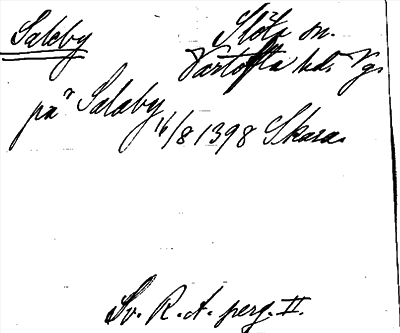 Saleby
Slöta sn.
Vartofta hd. Vg.
på Salaby 16/8 1398 Skara
Sv. R. A. perg. II.